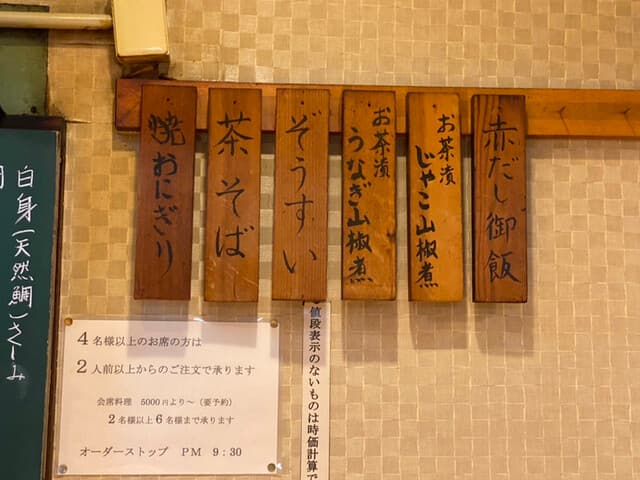 赤だし御飯
お茶漬
じゃこ山椒煮
お茶漬
うなぎ山椒煮
ぞうすい
茶そば
焼おにぎり
白身(天然鯛)さしみ
値段表示のないものは時価計算で
4名様以上のお席の方は
2人前以上からのご注文で承ります
会席料理 5000円より〜(要予約)
2名様以上6名様まで承ります
オーダーストップ PM 9:30